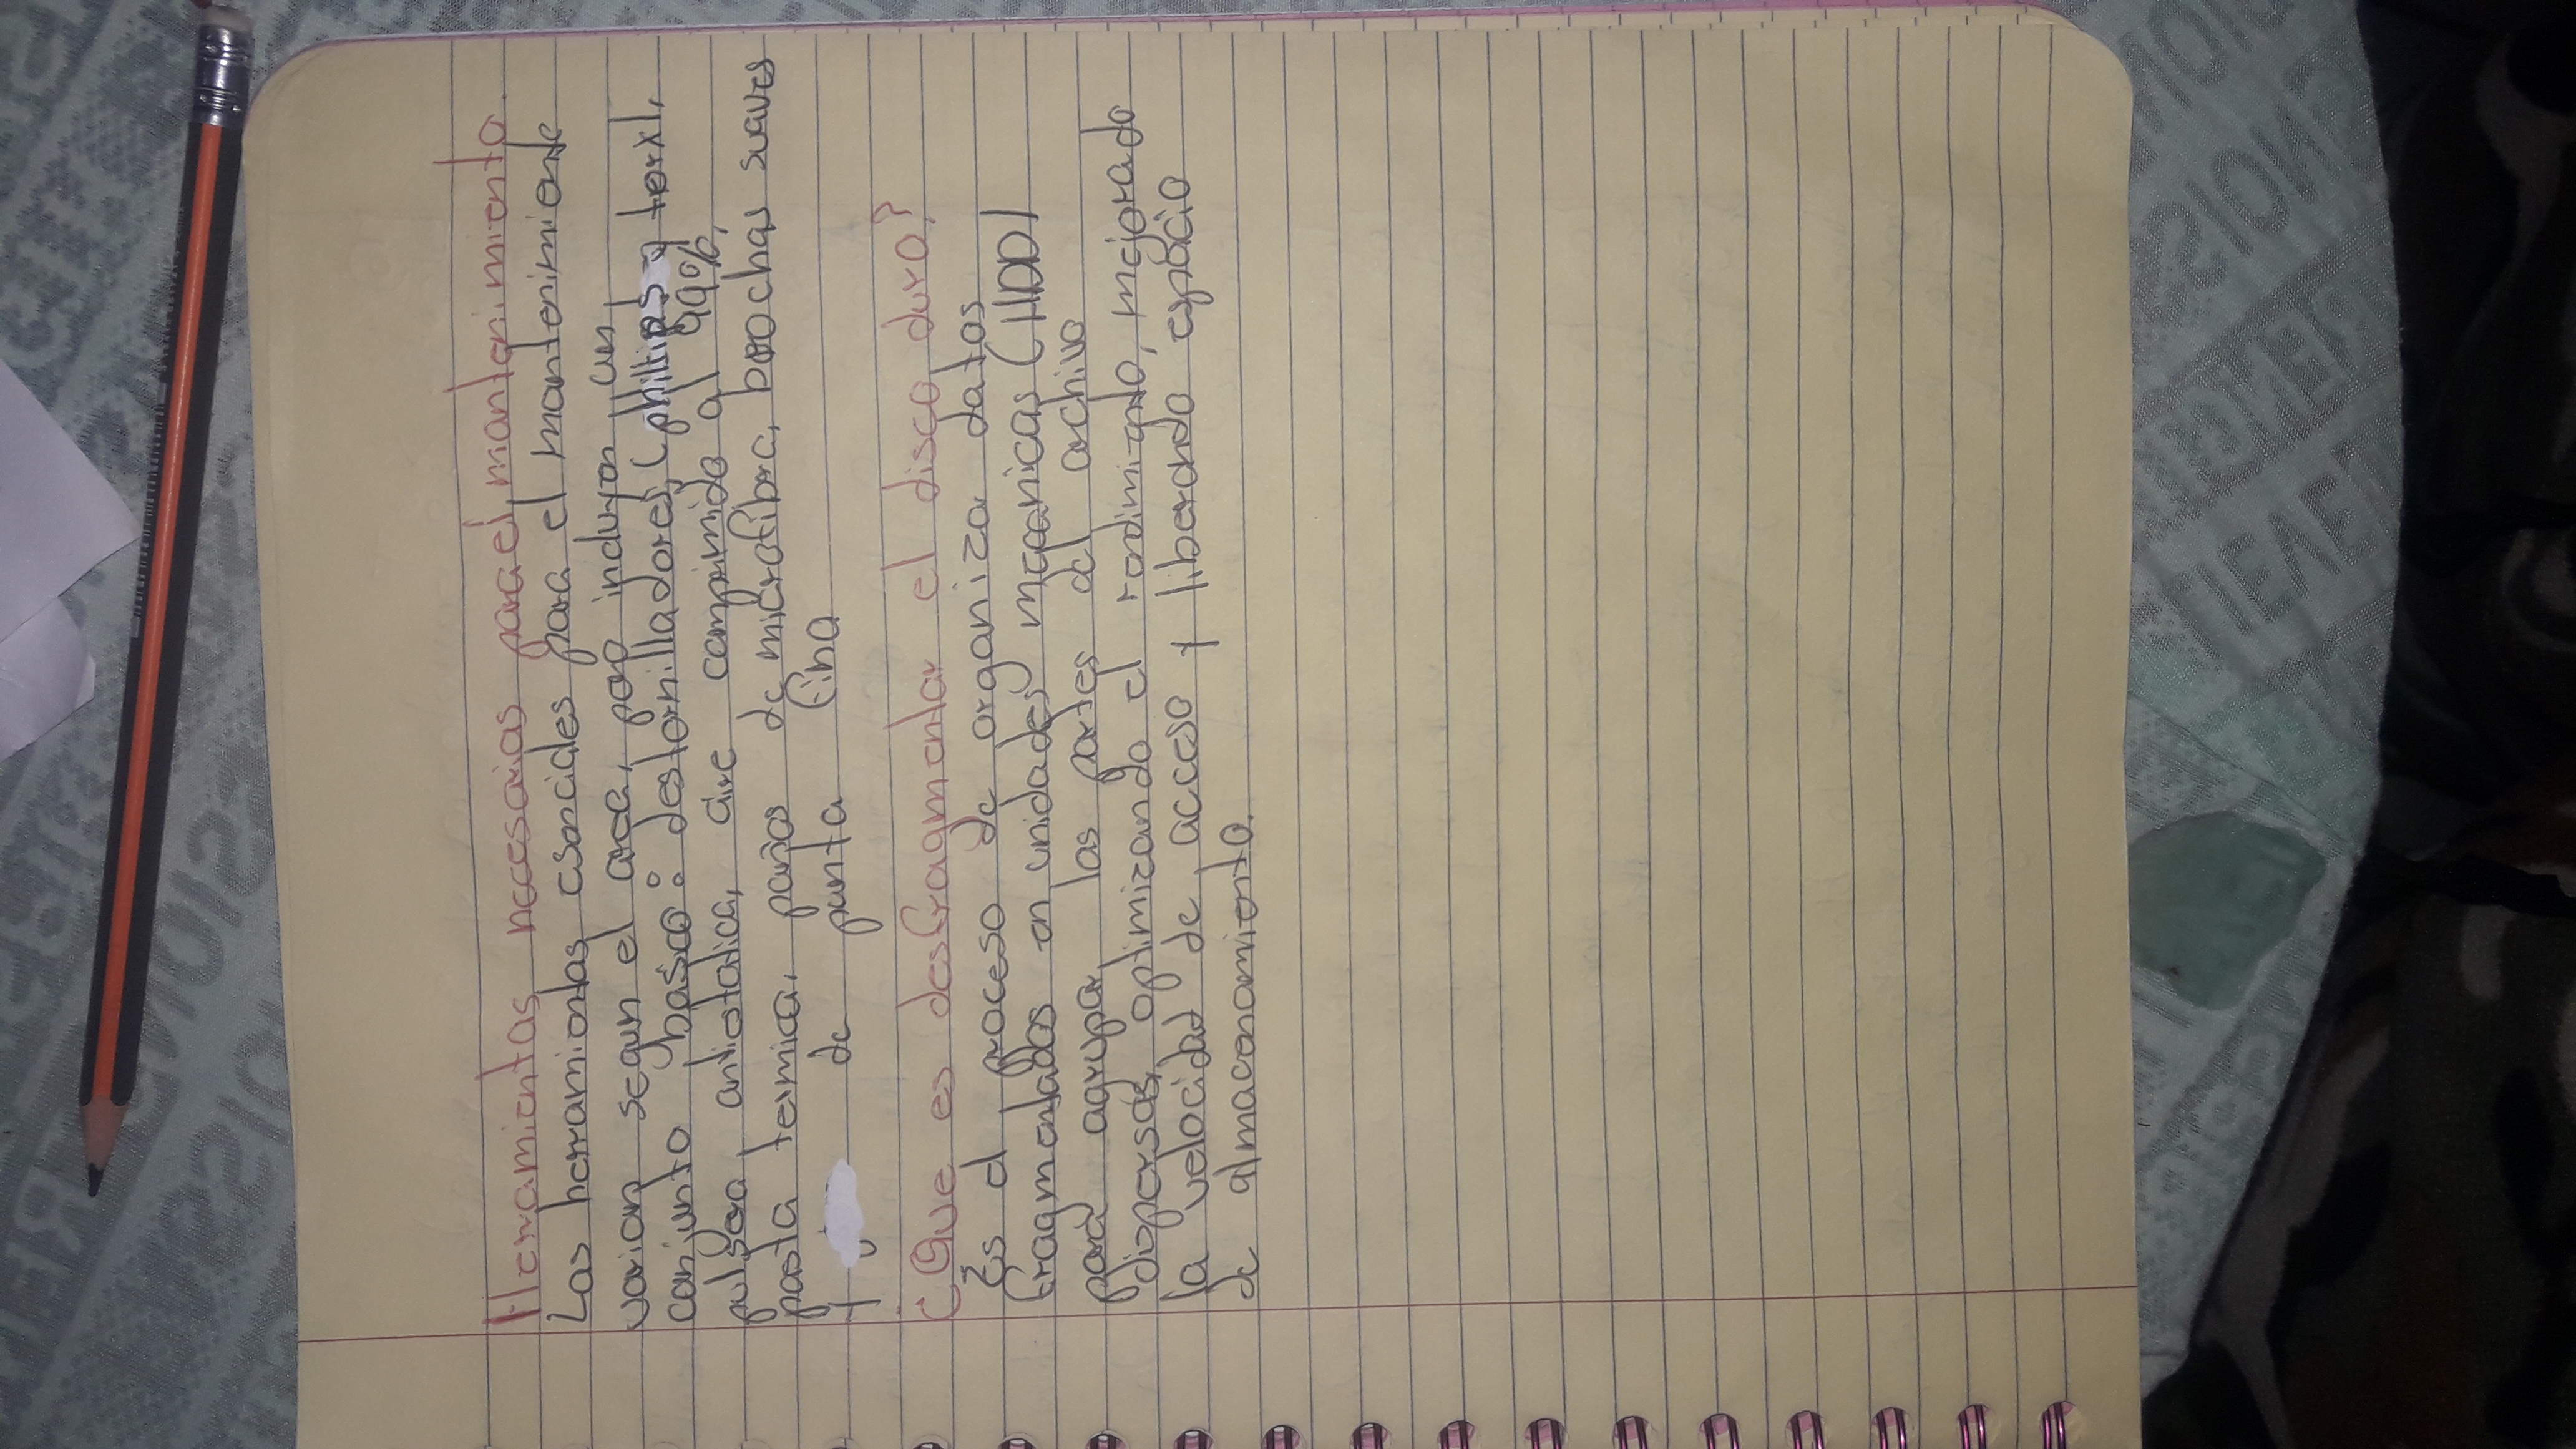 Herramientas necesarias para el mantenimiento.
Las herramientas esenciales para el mantenimiente
varian segun el area, pero incluyen un
conjunto basico: destornilladores (phillips y torx),
pulsera antiestatica, aire comprimido al 99%,
pasta termica, paños de microfibra, brochas suaves
y de punta fina
¿Que es desfragmentar el disco duro?
Es el proceso de organiza datos
fragmentados en unidades mecanicas (HDD)
para agrupar las partes del archivo
dispersas, optimizando el rendimiento, mejorado
la velocidad de acceso y liberando espacio
de almacenamiento.